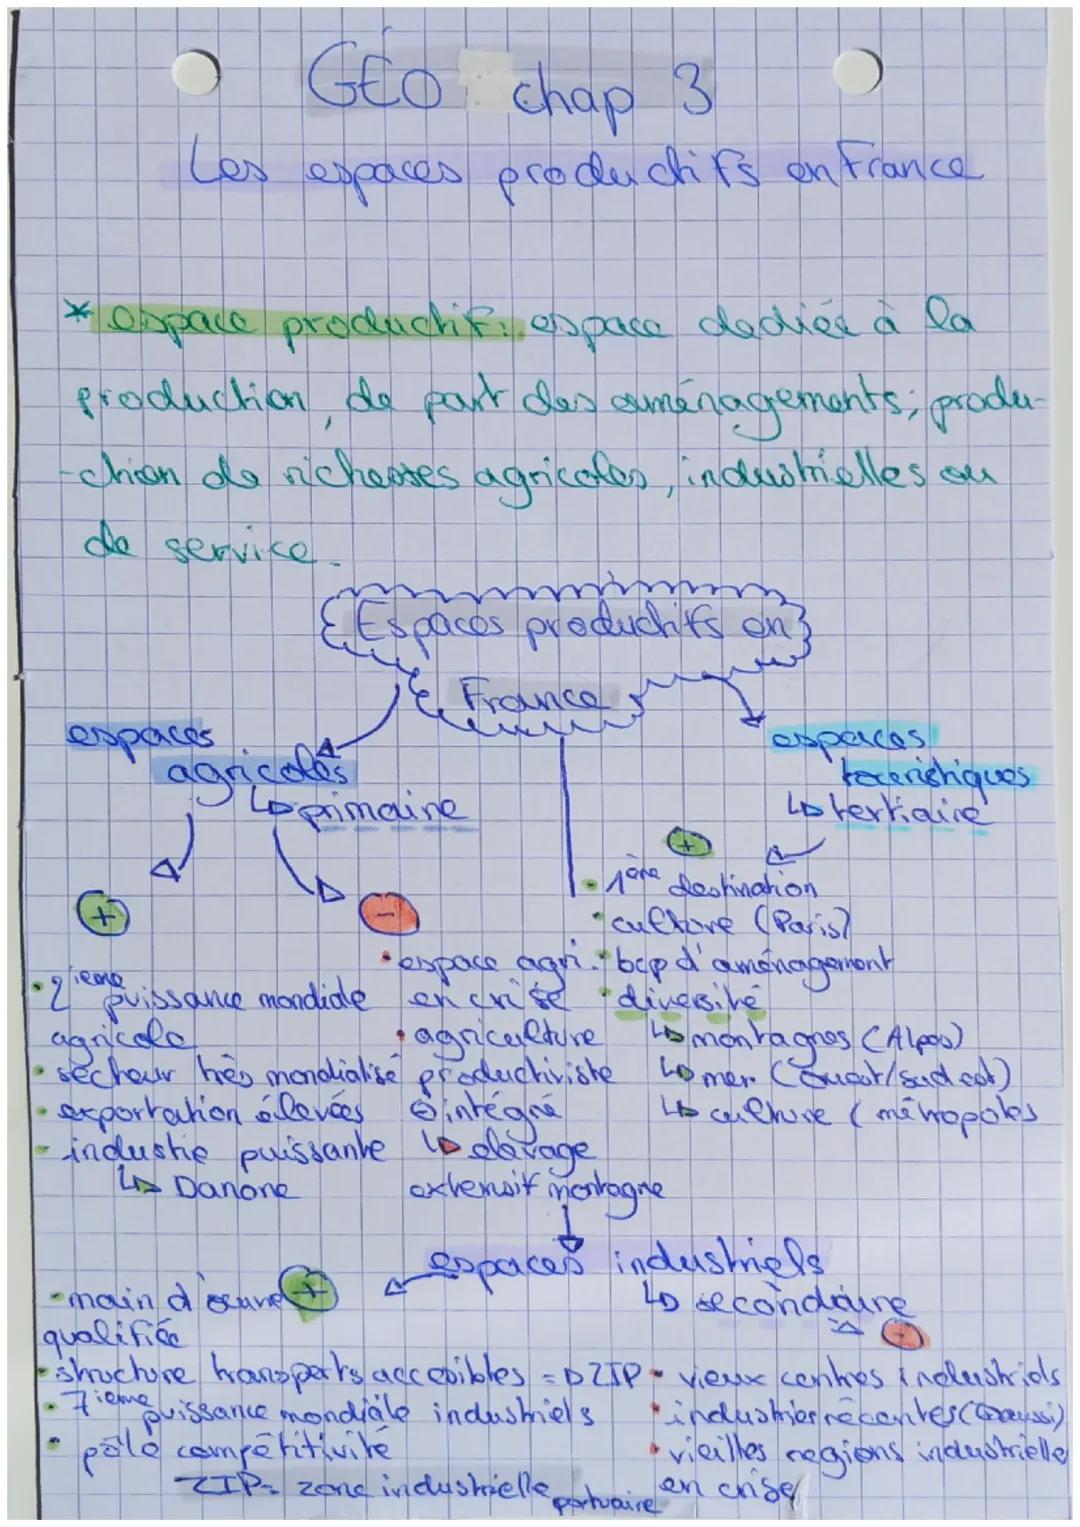 GÉO chap 3
Les espaces productifs en France
* espace productif: espace dediée à la
production, de part des aménagements; produ-
-ction de richesses agricoles, industrielles ou
de service.
Espaces productifs en
France
espaces
agricoles
↳ primaire
espaces
touristiques
↳ tertiaire
+
• 2ieme puissance mondiale
agricole
• secteur très mondialisé
• exportation élevées
• industrie puissante
↳ Danone
-
• espace agri.
en crise
• agriculture
productiviste
intégré
↳ élevage
extensif montagne
+
• 1ère destination
• culture (Paris)
• bcp d'aménagement
• diversité
↳ montagnes (Alpes)
↳ mer (ouest/sud est)
↳ culture (métropoles
espaces industriels
↳ secondaire
+
• main d'œuvre
qualifiée
• structure transports accesibles => ZIP
• 7ieme puissance mondiale industriels
• pôle compétitivité
ZIP= zone industrielle portuaire
-
• vieux centres industriels
• industries récentes
• vieilles regions industrielle
en crise